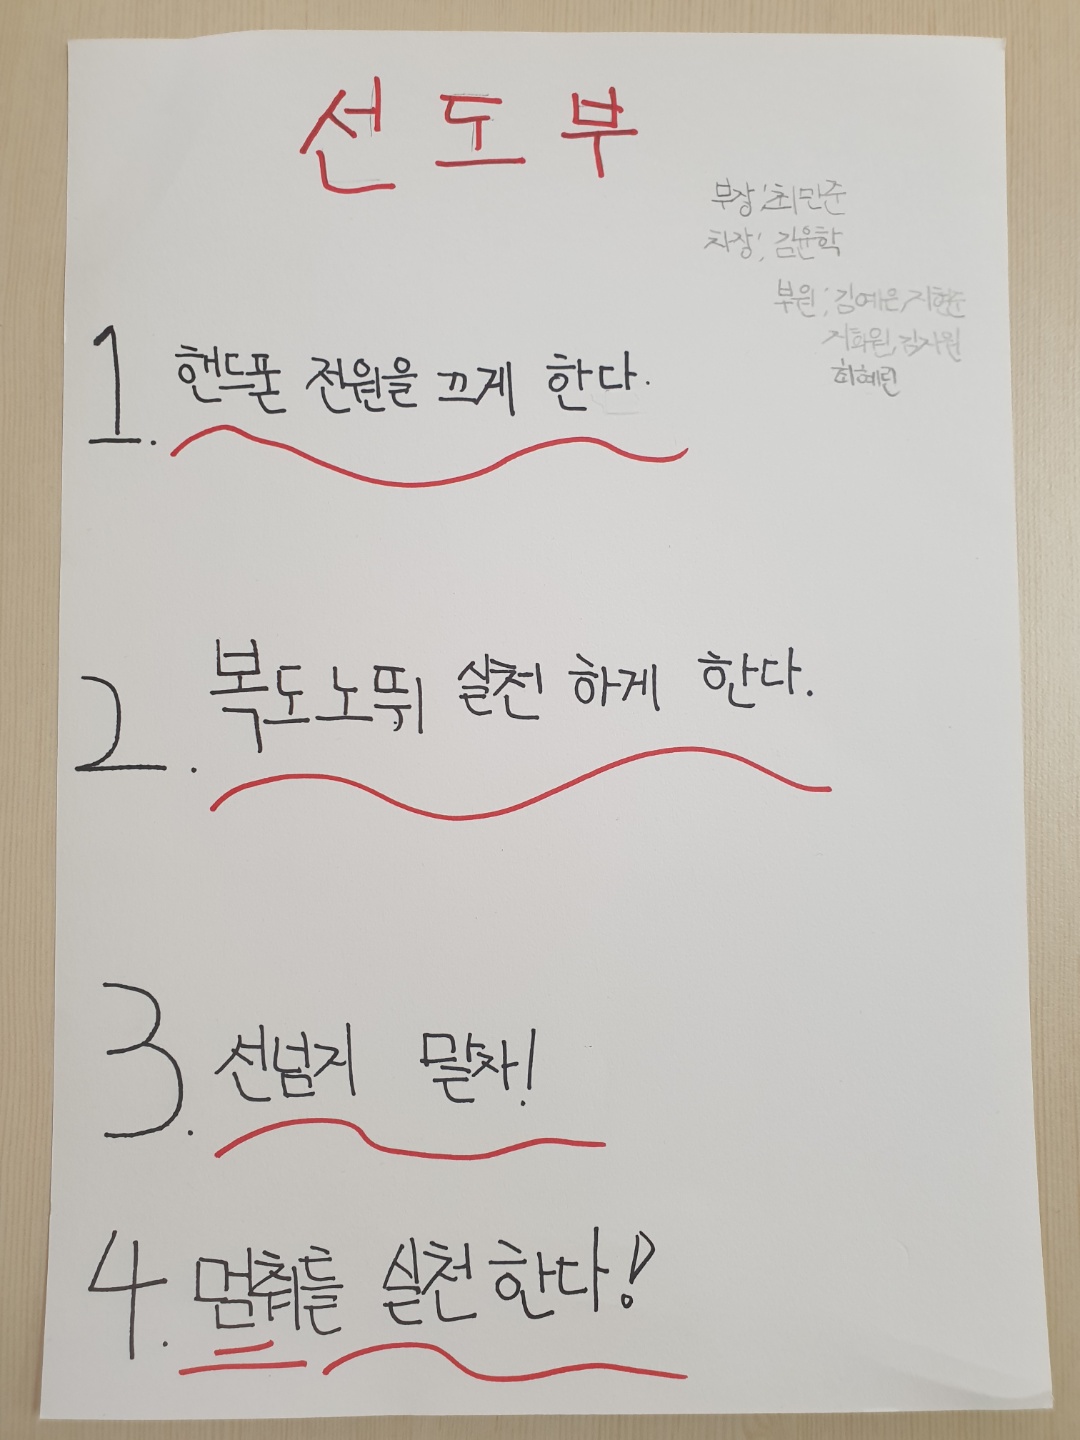 선도부
부장; 최민준
차장; 김윤학
부원; 김예은, 지현준
지화원, 김지원
최혜린
1. 핸드폰 전원을 끄게 한다.
2. 복도노뛰 실천 하게 한다.
3. 선넘지 말자!
4. 멈춰들 실천한다!